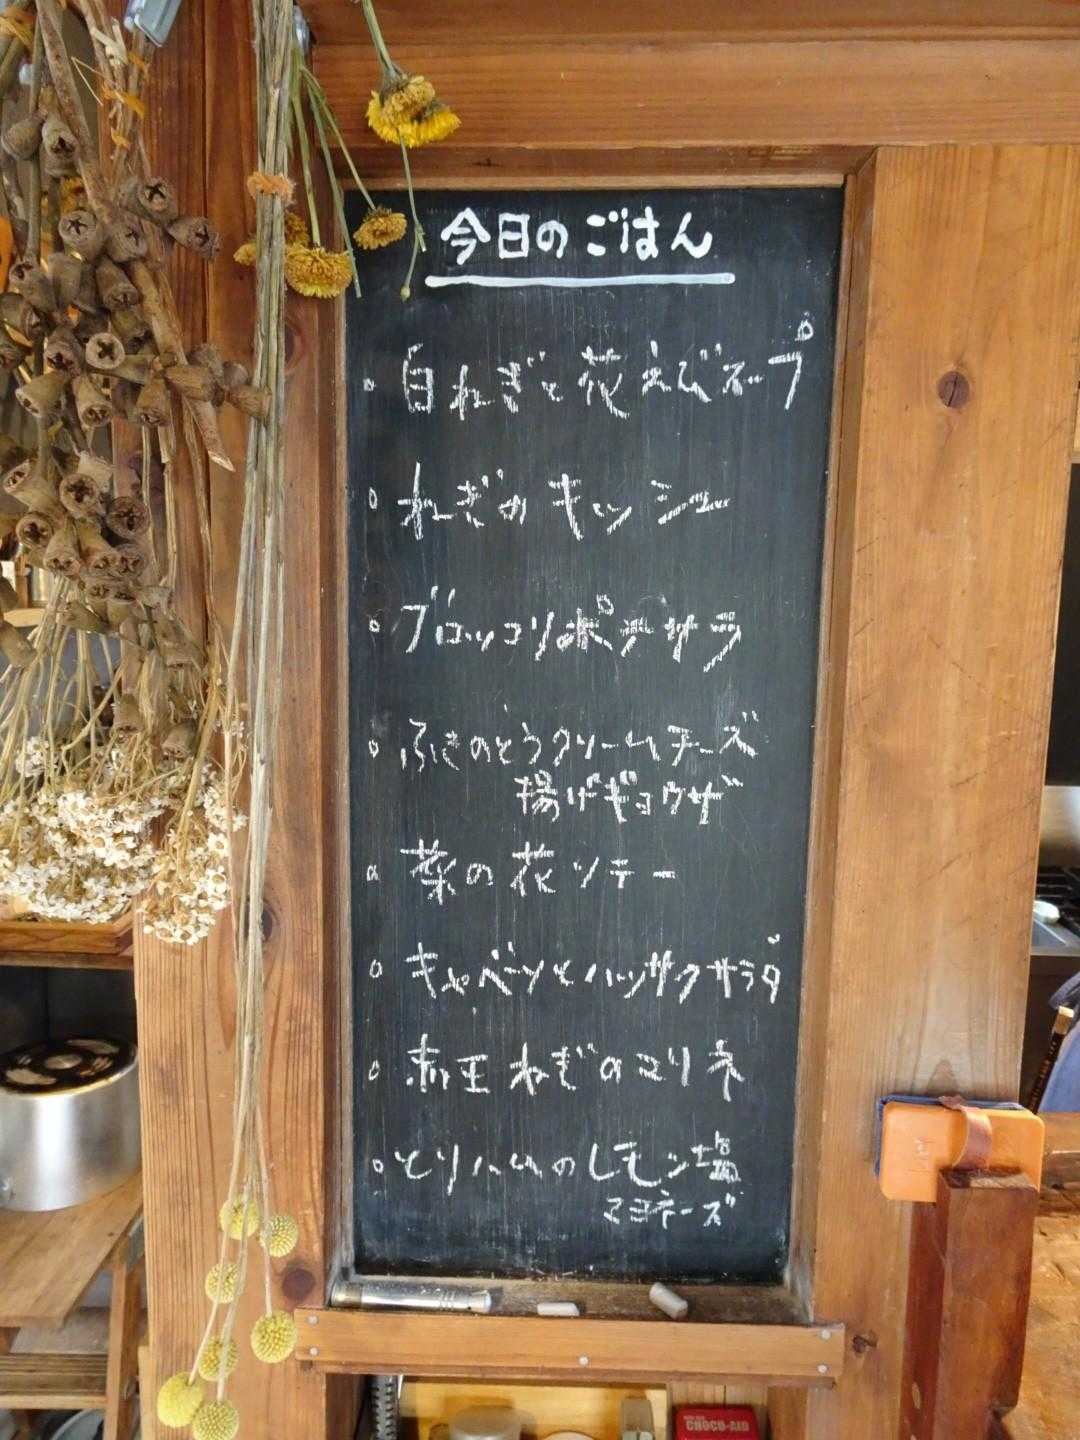 今日のごはん
。白ねぎと花えびスープ
。ねぎのキッシュ
。ブロッコリポテサラ
。ふきのとうクリームチーズ
揚げギョウザ
。菜の花ソテー
。キャベーツとハッサクサラダ
。赤玉ねぎのマリネ
。とりハムのレモン塩
マヨネーズ
CHOCO-AID